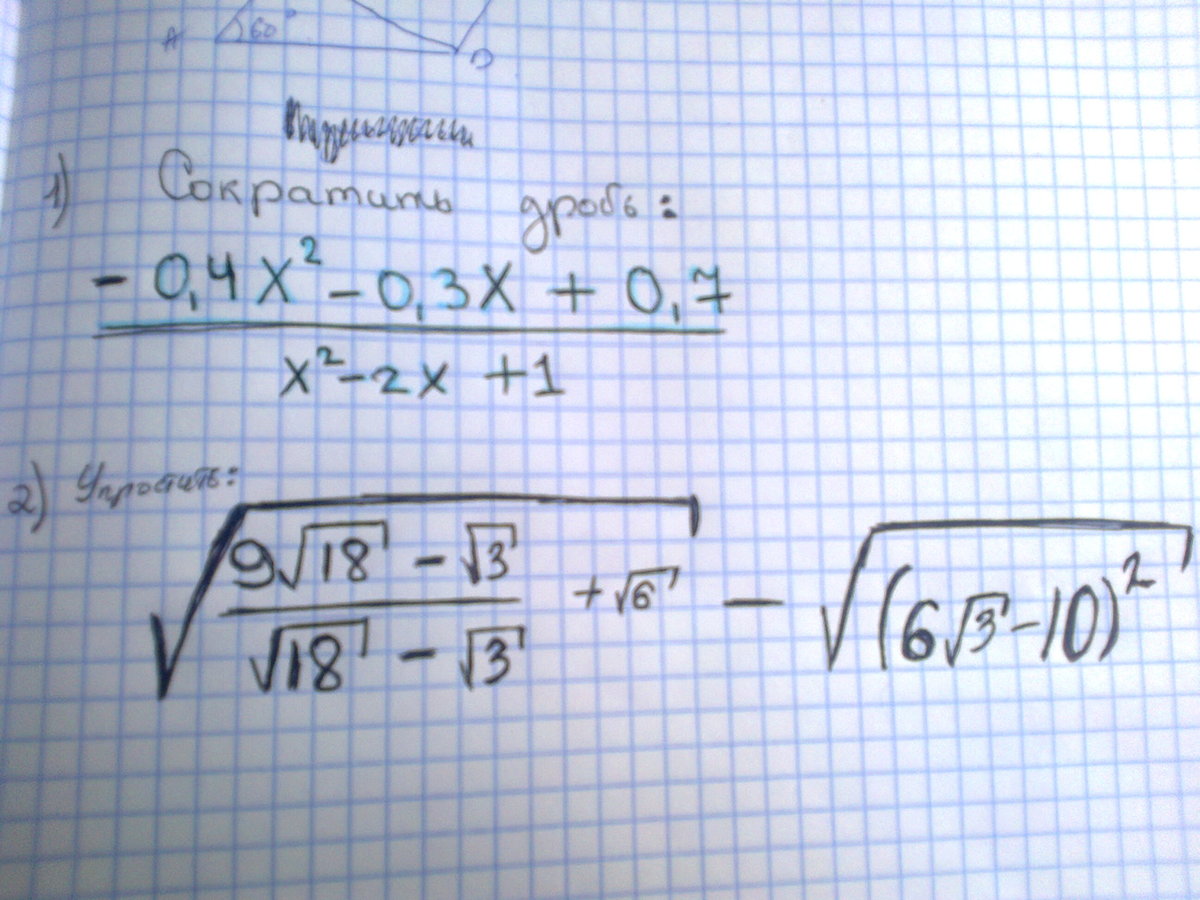 A 60° D
1) Сократить дробь:
- 0,4x² - 0,3x + 0,7
x² - 2x + 1
2) Упростить:
√((9√18 - √3)/(√18 - √3) + √6) - √((6√3 - 10)²)